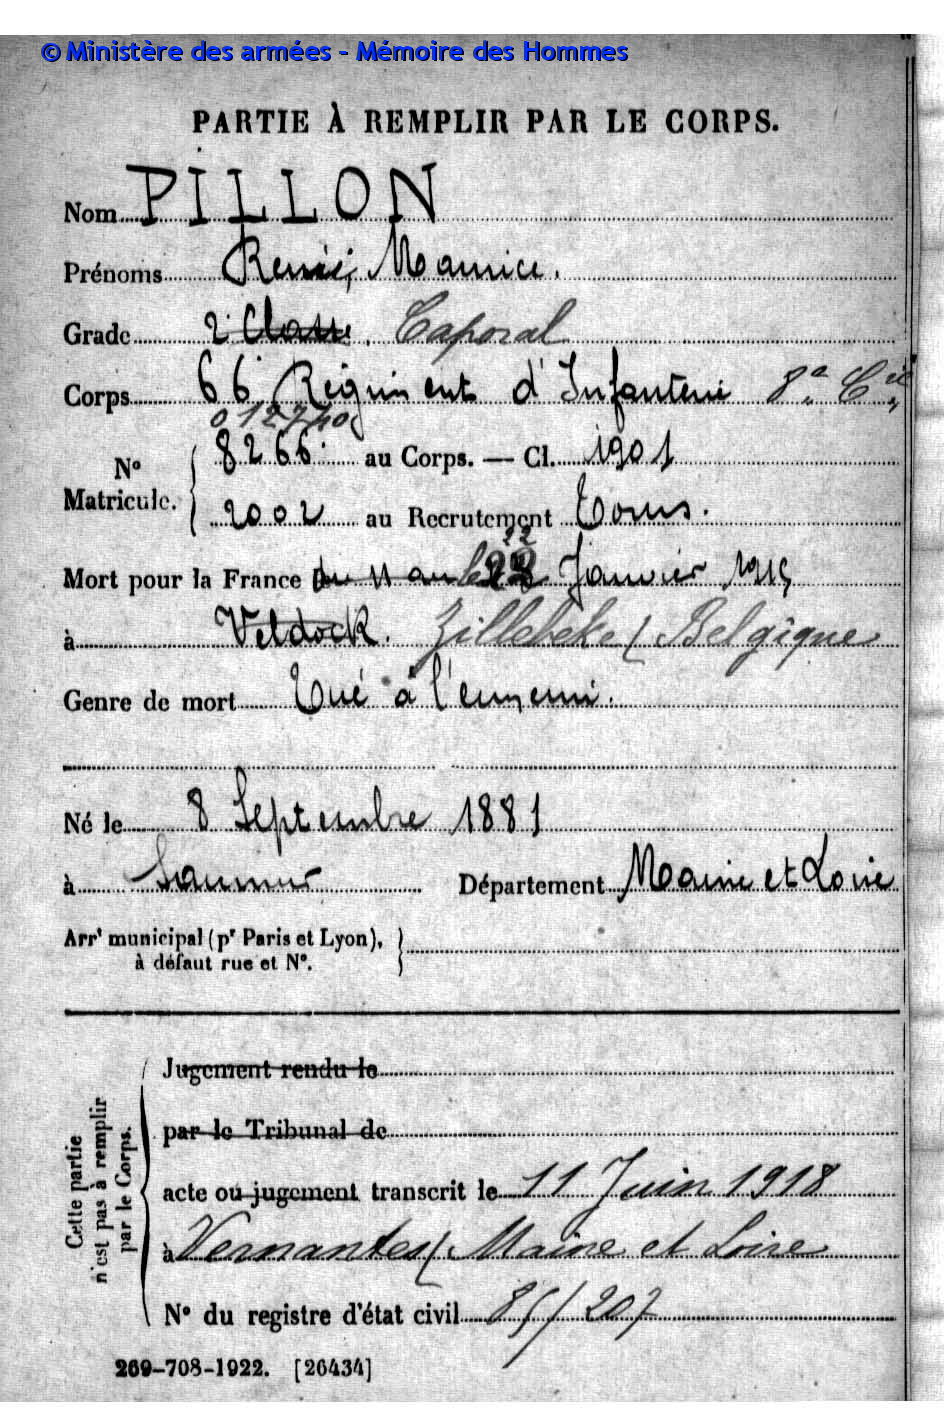 © Ministère des armées - Mémoire des Hommes
PARTIE À REMPLIR PAR LE CORPS.
Nom PILLON
Prénoms René, Maurice.
Grade 2e Classe. Caporal
Corps 66e Régiment d'Infanterie 8e Cie
012740
8266. au Corps. — Cl. 1901
N° Matricule.
2002 au Recrutement Tours.
22
Mort pour la France Du 11 au le 23 Janvier 1915
à Veldock. Zillebeke (Belgique
Genre de mort Tué à l'ennemi.
Né le 8 Septembre 1881
à Saumur Département Maine et Loire
Arrt municipal (pr Paris et Lyon),
à défaut rue et N°.
Cette partie n'est pas à remplir par le Corps.
Jugement rendu le
par le Tribunal de
acte ou jugement transcrit le 11 Juin 1918
à Vernantes (Maine et Loire
N° du registre d'état civil 85/207
269-708-1922. [26434]